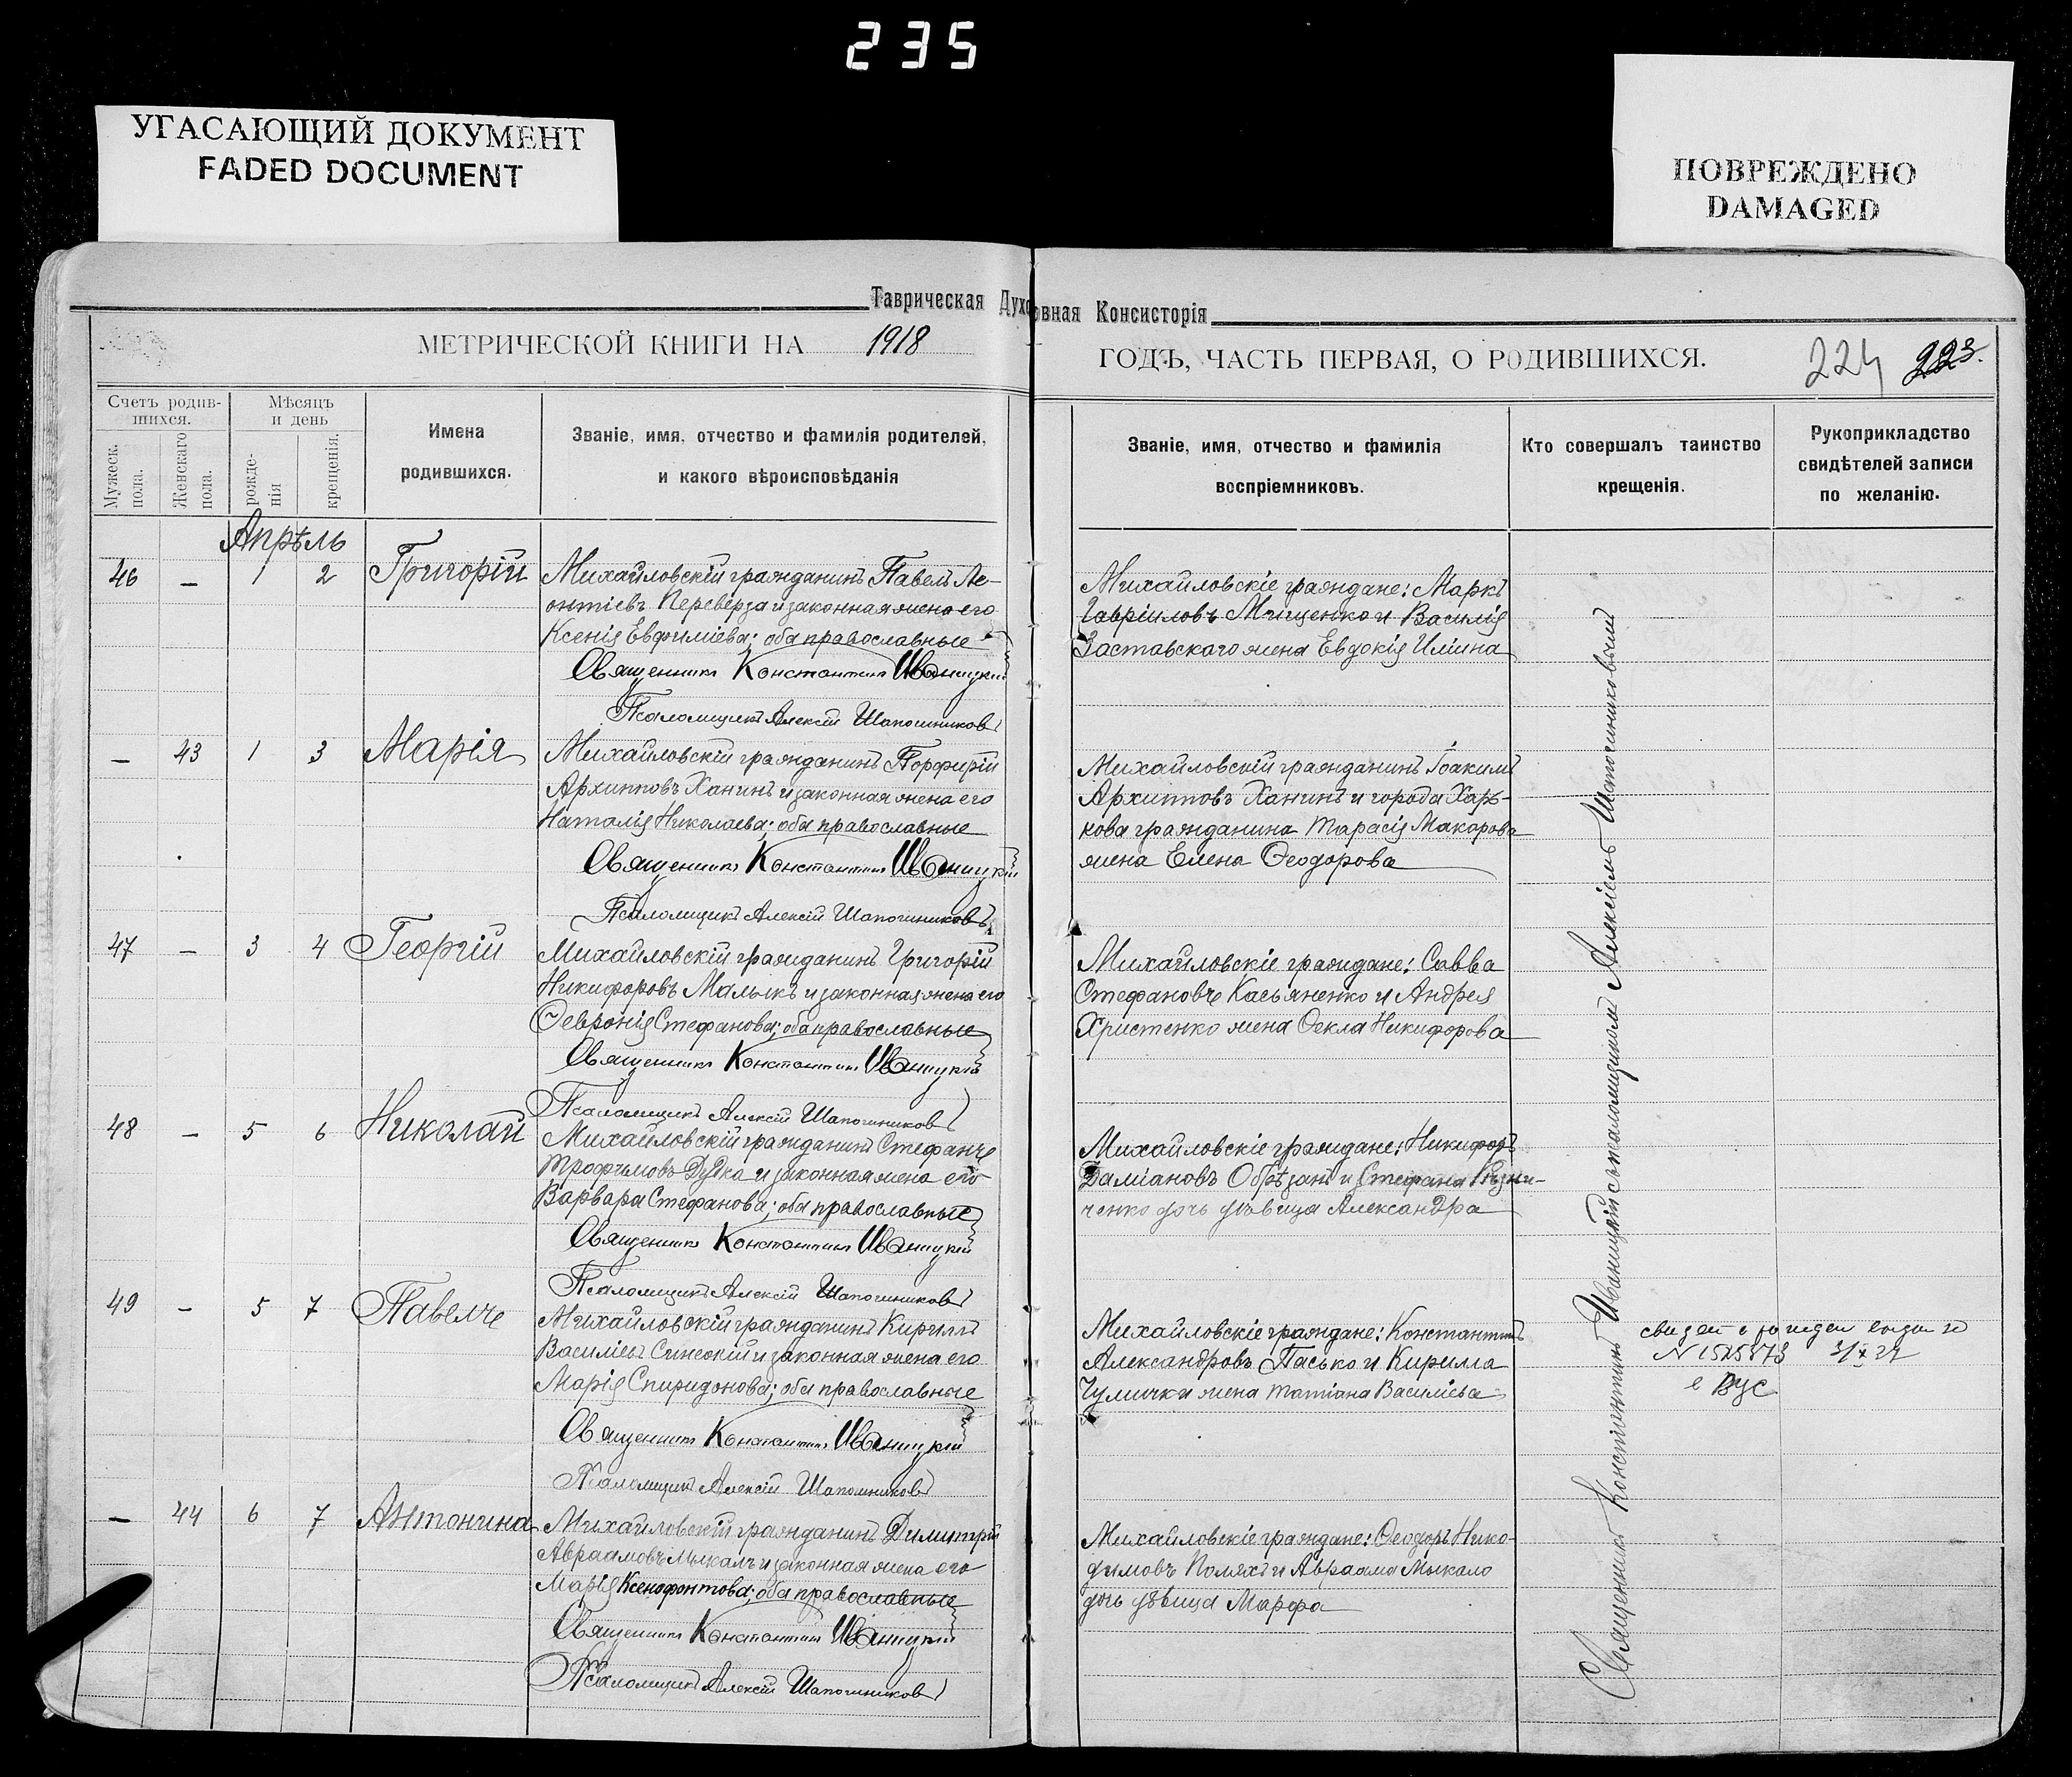 235
УГАСАЮЩИЙ ДОКУМЕНТ
FADED DOCUMENT
ПОВРЕЖДЕНО
DAMAGED
Таврическая Духовная Консисторія
МЕТРИЧЕСКОЙ КНИГИ НА 1918
ГОДЪ, ЧАСТЬ ПЕРВАЯ, О РОДИВШИХСЯ.
224 223.
Счетъ родив-
шихся.
Мужеск. пола.
Женскаго пола.
Мѣсяцъ
и день
рожде-
нія
крещенія.
Имена
родившихся.
Званіе, имя, отчество и фамилія родителей,
и какого вѣроисповѣданія
Званіе, имя, отчество и фамилія
воспріемниковъ.
Кто совершалъ таинство
крещенія.
Рукоприкладство
свидѣтелей записи
по желанію.
Апрѣль
46 — 1 2 Григорій
Михайловскій гражданинъ Павелъ Ле-
онтіевъ Переверза и законная жена его
Ксенія Евфиміева; оба православные
Священникъ Константинъ Иваницкій
Псаломщикъ Алексій Шапошниковъ
Михайловскіе граждане: Маркъ
Гавріиловъ Мищенко и Василія
Заставскаго жена Евдокія Иліина
— 43 1 3 Марія
Михайловскій гражданинъ Порфирій
Архипповъ Ханинъ и законная жена его
Наталія Николаева; оба православные
Священникъ Константинъ Иваницкій
Псаломщикъ Алексій Шапошниковъ
Михайловскій гражданинъ Іоакимъ
Архипповъ Ханинъ и города Харь-
кова гражданина Тарасія Макарова
жена Елена Ѳеодорова
47 — 3 4 Георгій
Михайловскій гражданинъ Григорій
Никифоровъ Малыкъ и законная жена его
Февронія Стефанова; оба православные
Священникъ Константинъ Иваницкій
Псаломщикъ Алексій Шапошниковъ
Михайловскіе граждане: Савва
Стефановъ Касьяненко и Андрея
Христенко жена Ѳекла Никифорова
48 — 5 6 Николай
Михайловскій гражданинъ Стефанъ
Трофимовъ Дудка и законная жена его
Варвара Стефанова; оба православные
Священникъ Константинъ Иваницкій
Псаломщикъ Алексій Шапошниковъ
Михайловскіе граждане: Никифоръ
Даміановъ Обрѣзанъ и Стефана Рѣзни-
ченко дочь дѣвица Александра
49 — 5 7 Павелъ
Михайловскій гражданинъ Кириллъ
Василіевъ Синеокій и законная жена его
Марія Спиридонова; оба православные
Священникъ Константинъ Иваницкій
Псаломщикъ Алексій Шапошниковъ
Михайловскіе граждане: Константинъ
Александровъ Пасько и Кирилла
Чумичка жена Татіана Василіева
свидет о рожден
N 1525873
— 44 6 7 Антонина
Михайловскій гражданинъ Димитрій
Авраамовъ Мыкалъ и законная жена его
Марія Ксенофонтова; оба православные
Священникъ Константинъ Иваницкій
Псаломщикъ Алексій Шапошниковъ
Михайловскіе граждане: Ѳеодоръ Нико-
димовъ Поляхъ и Авраама Мыкало
дочь дѣвица Марфа
Священникъ Константинъ Иваницкій съ псаломщикомъ Алексіемъ Шапошниковымъ